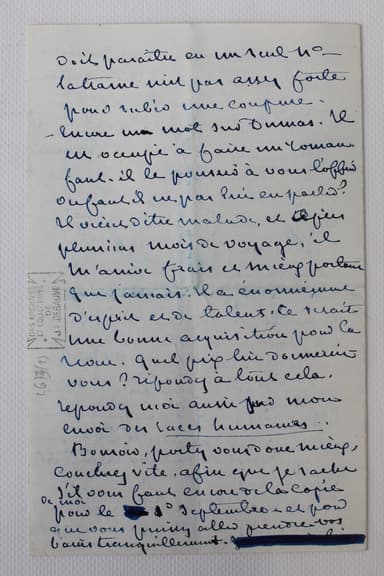 doit paraître en un seul no
la trame n'est pas assez forte
pour subir une coupure.
- Encore un mot sur Dumas. Il
est occupé à faire un roman
faut-il le pousser à vous l'offrir
ou faut-il ne pas lui en parler?
Il vient d'être malade, et après
plusieurs mois de voyage, il
m'arrive frais et mieux portant
que jamais. Il a énormément
d'esprit et de talent. Ce serait
une bonne acquisition pour la
revue. Quel prix lui donneriez
vous? répondez à tout cela.
répondez moi aussi sur mon
envoi des races humaines.
Bonsoir, portez vous donc mieux,
couchez vite, afin que je sache
s'il vous faut encore de la copie
de moi
pour le 1er septembre et pour
que vous puissiez aller prendre vos
bains tranquillement.